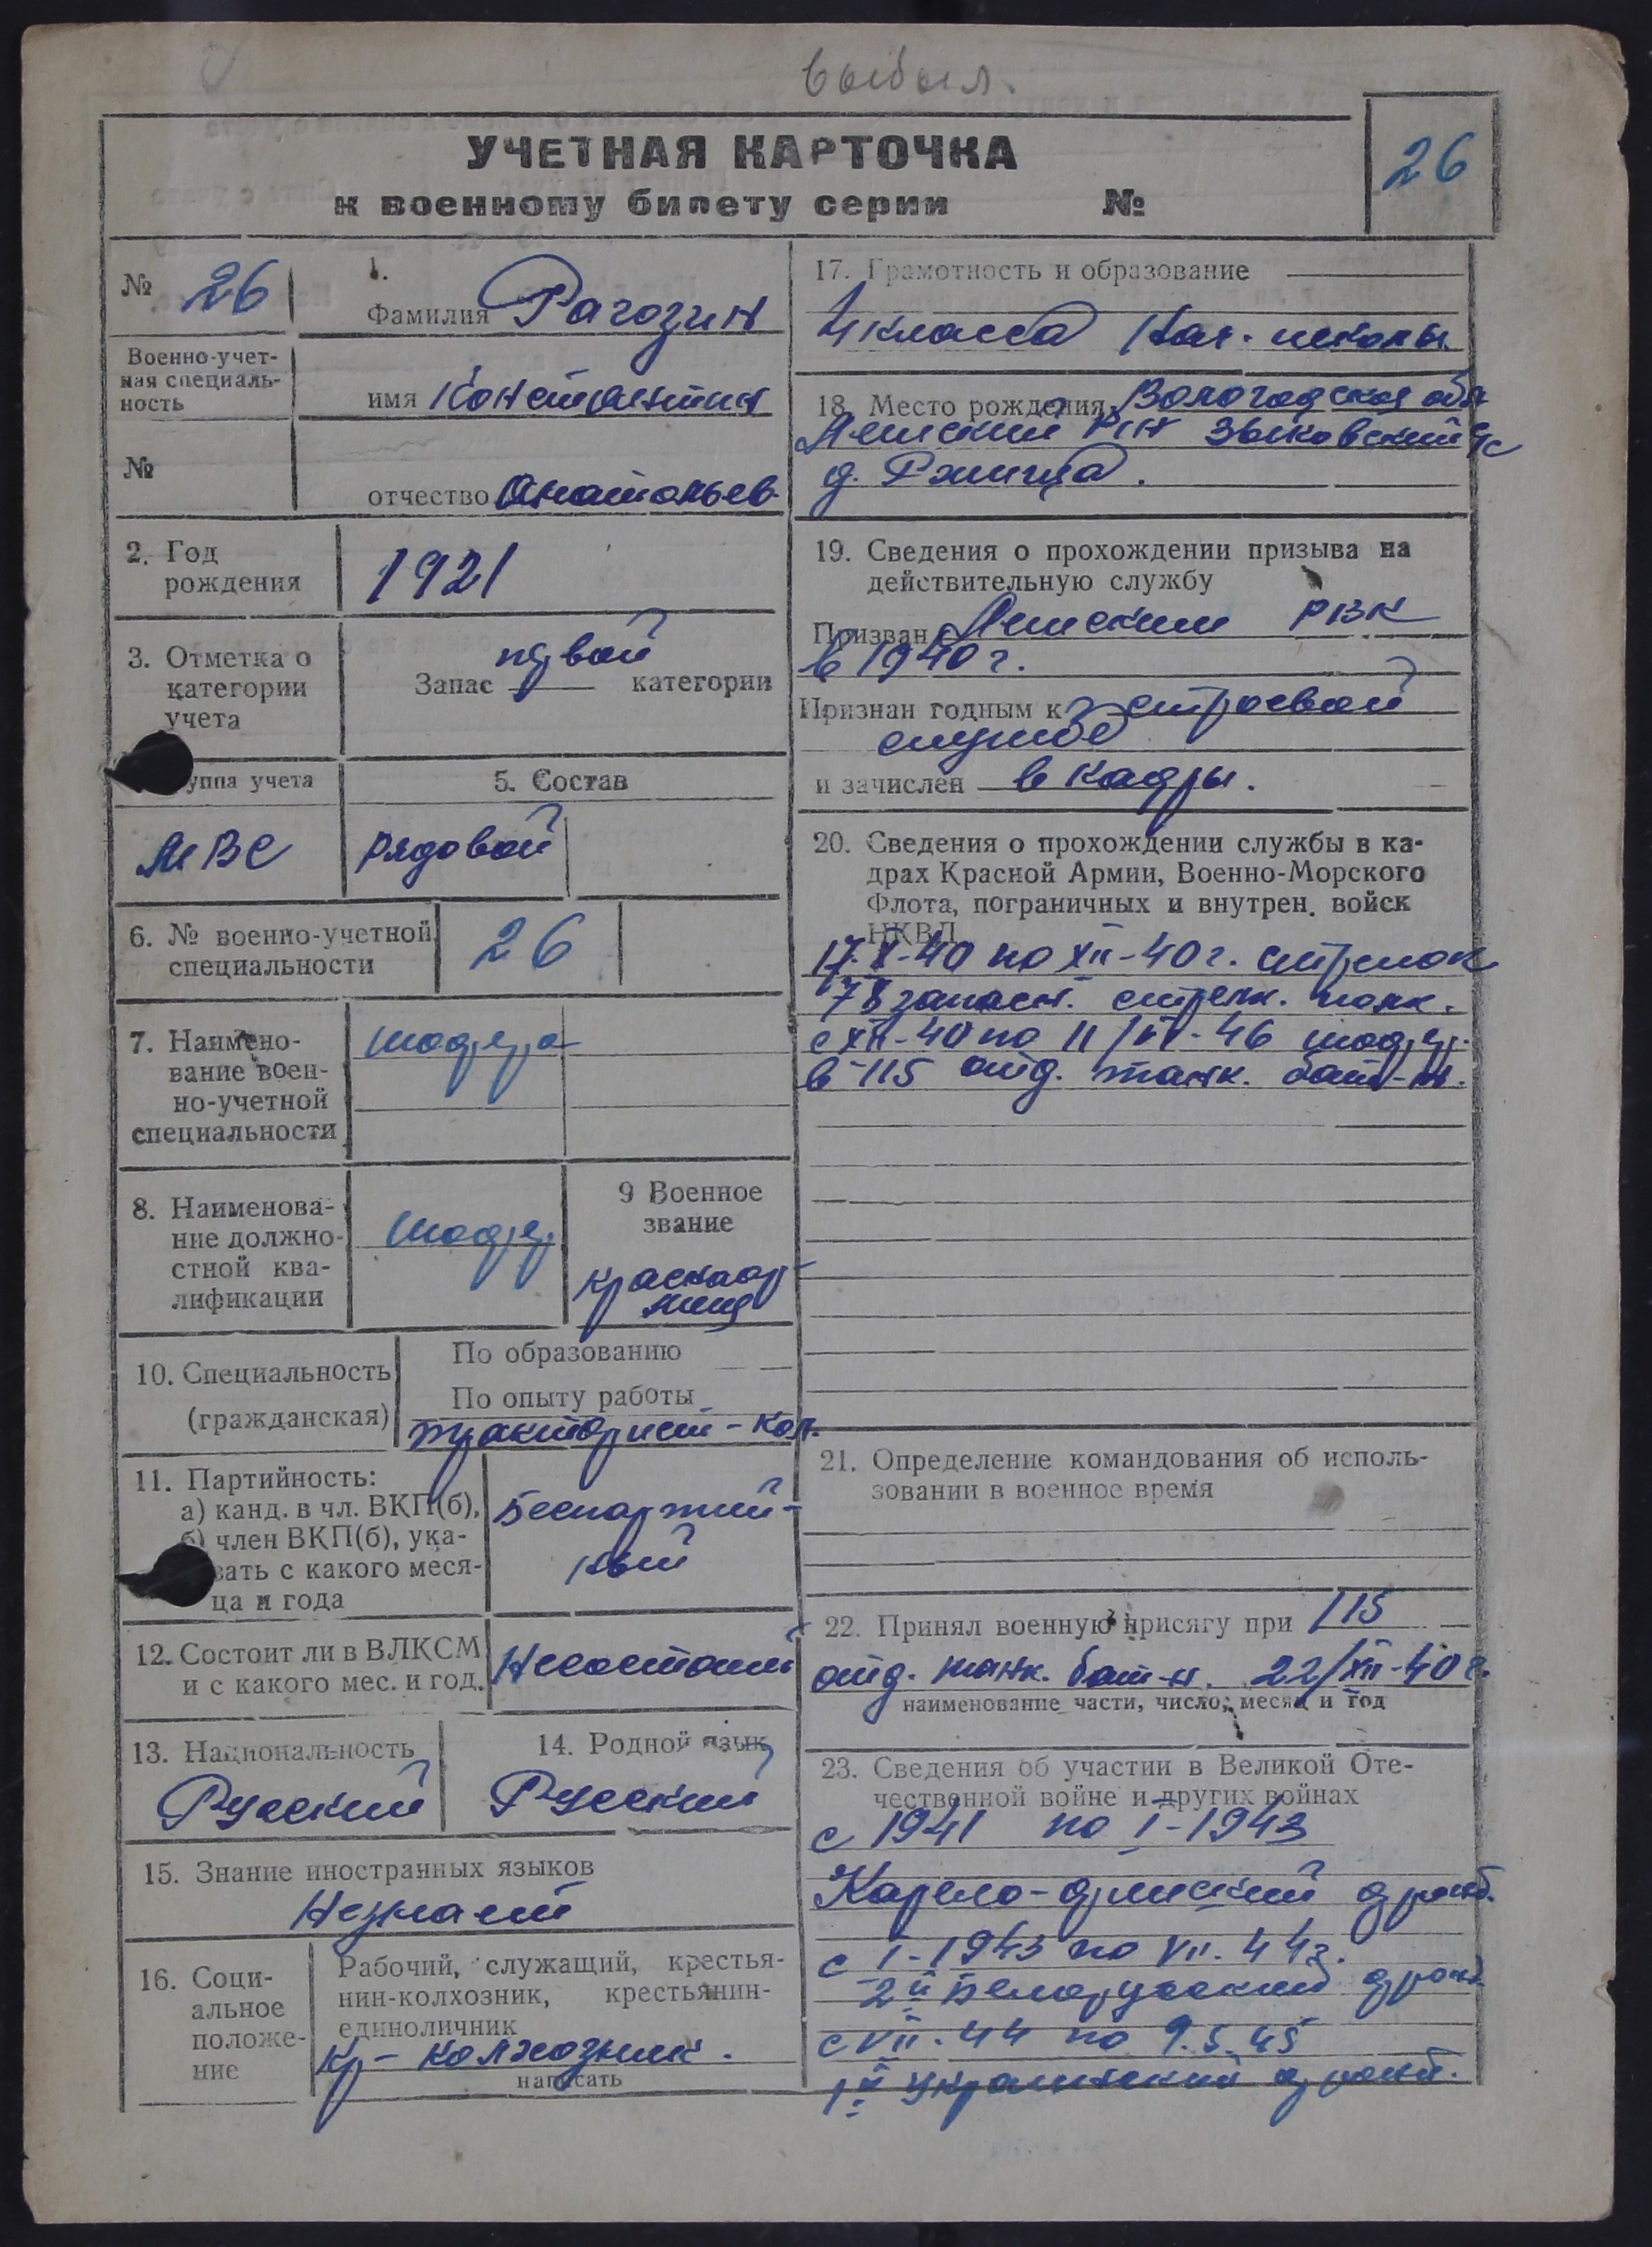 выбыл.
УЧЕТНАЯ КАРТОЧКА
к военному билету серии №
26
№ 26
1.
Фамилия Рагозин
Военно-учет-
ная специаль-
ность
имя Константин
№
отчество Анатольев.
2. Год
рождения
1921
3. Отметка о
категории
учета
первой
Запас категории
уппа учета
5. Состав
МВС
рядовой
6. № военно-учетной
специальности
26
7. Наимено-
вание воен-
но-учетной
специальности
шофера
8. Наименова-
ние должно-
стной ква-
лификации
шофер
9 Военное
звание
красноар-
меец
10. Специальность
(гражданская)
По образованию
По опыту работы
тракторист-кол.
11. Партийность:
а) канд. в чл. ВКП(б),
б) член ВКП(б), ука-
зать с какого меся-
ца и года
Беспартий-
ный
12. Состоит ли в ВЛКСМ
и с какого мес. и год.
Несостоит
13. Национальность
Русский
14. Родной язык
Русский
15. Знание иностранных языков
Незнает
16. Соци-
альное
положе-
ние
Рабочий, служащий, крестья-
нин-колхозник, крестьянин-
единоличник
Кр-колхозник.
написать
17. Грамотность и образование
4 класса нач. школы
18. Место рождения Вологодская обл
Лешский р-н Зыковский с/с
д.
19. Сведения о прохождении призыва на
действительную службу
Призван Лешским РВК
в 1940 г.
Признан годным к строевой
службе
и зачислен в кадры.
20. Сведения о прохождении службы в ка-
драх Красной Армии, Военно-Морского
Флота, пограничных и внутрен. войск
НКВД
17.X-40 по XII-40 г. стрелок
78 запасн. стрелк. полк.
с XII-40 по 11/VI-46 шофер.
в 115 отд. танк. бат-н.
21. Определение командования об исполь-
зовании в военное время
22. Принял военную присягу при 115
отд. танк. бат-н. 22/XII-40 г.
наименование части, число, месяц и год
23. Сведения об участии в Великой Оте-
чественной войне и других войнах
с 1941 по I-1943
Карело-финский фронт.
с I-1943 по VII.44г.
2й Белорусский фронт.
с VII.44 по 9.5.45
1й Украинский фронт.